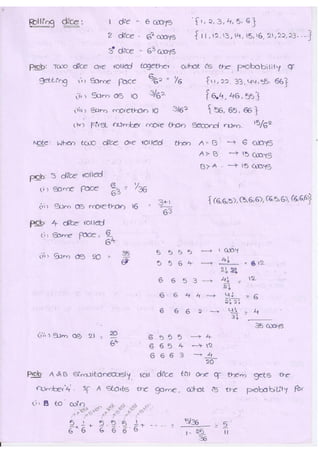 Rolling dice: 1 dice - 6 ways {1, 2, 3, 4, 5, 6}
2 dice - 6² ways {11, 12, 13, 14, 15, 16, 21, 22, 23...}
3 dice - 6³ ways
Pcb: Two dice are rolled together what is the probability of
getting (i) Same face 6/6² = 1/6 {11, 22, 33, 44, 55, 66}
(ii) Sum as 10 3/6² {6,4, 46, 55}
(iii) Sum morethan 10 3/6² {56, 65, 66}
(iv) First number more than Second num. 15/6²
Note: When two dice are rolled then A=B → 6 ways
A>B → 15 ways
B>A → 15 ways
pcb 3 dice rolled
(i) Same face 6/6³ = 1/36
(ii) Sum as more than 16 = 3+1/6³ {(6,6,5), (5,6,6), (6,5,6), (6,6,6)}
pcb 4 dice rolled
(i) Same face, 6/6⁴
(ii) Sum as 20 = 35/6⁴ 5 5 5 5 → 1 way
5 5 6 4 → 4!/2! = 12
6 6 5 3 → 4!/2! = 12
6 6 4 4 → 4!/2!2! = 6
6 6 6 2 → 4!/3! = 4
35 ways
(iii) Sum as 21 = 20/6⁴ 6 5 5 5 → 4
6 6 5 4 → 12
6 6 6 3 → 4
20
Pcb A & B simultaneously roll dice till one of them gets the
number '4'. If A Starts the game, what is the probability for
(i) B to win
5/6 · 1/6 + 5/6 · 5/6 · 5/6 · 1/6 + ---- = 5/36 / 1 - 25/36 = 5/11